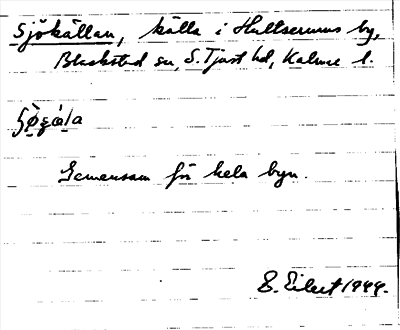 Sjökällan, källa i Hultserums by,
Blackstad sn, S. Tjust hd, Kalmar l.
Gemensam för hela byn.
S. Eilert 1944.